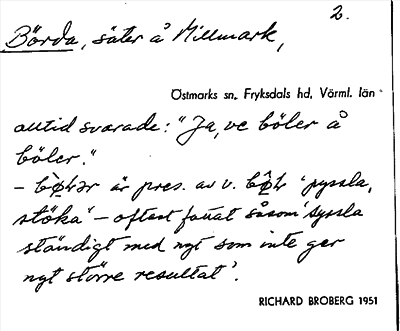 2.
Börda, säter å Millmark,
Östmarks sn, Fryksdals hd, Värml. län
alltid svarade: "Ja, ve böler å
böler."
- är pres. av v. 'pyssla,
stöka' - oftast fattat såsom 'syssla
ständigt med ngt som inte ger
ngt större resultat'.
RICHARD BROBERG 1951